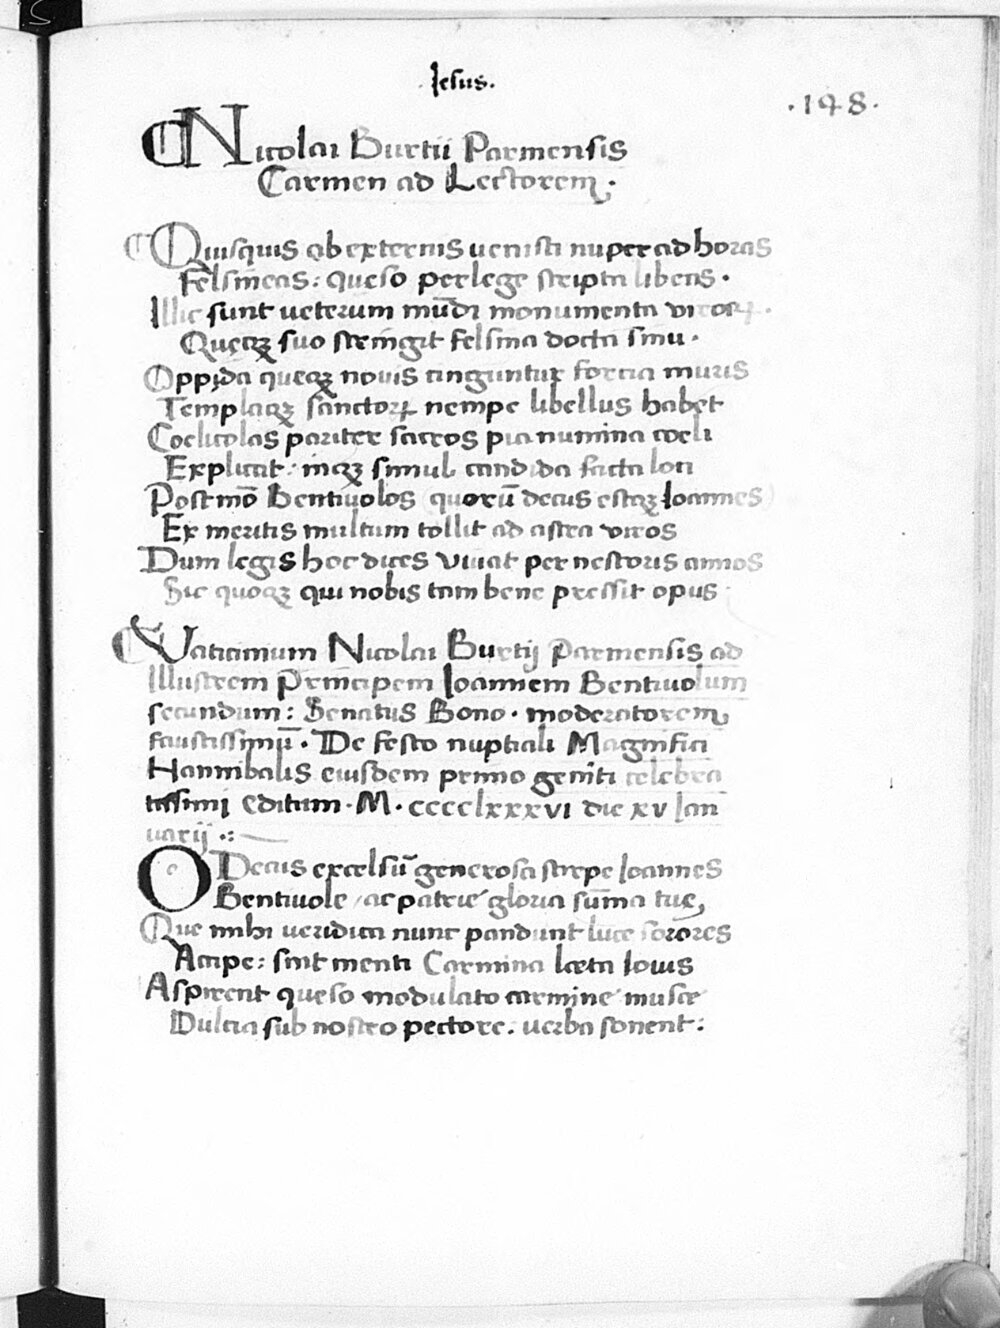 Iesus.
.148.
Nicolai Burtii Parmensis
Carmen ad Lectorem.
Quisquis ab externis uenisti nuper ad horas
Felsineas: queso perlege scripta libens.
Illic sunt ueterum mūdi monumenta viroꝝ.
Quęqꝫ suo stringit felsina docta sinu.
Oppida queqꝫ nouis cinguntur fortia muris
Templaqꝫ sanctoꝝ nempe libellus habet
Coelicolas pariter sacros pia numina coeli
Explicat: inqꝫ simul candida facta loci
Post mō Bentiuolos (quorū decus estqꝫ Ioannes)
Ex meritis multum tollit ad astra viros
Dum legis hoc dices viuat per nestoris annos
Sic quoqꝫ qui nobis tam bene pressit opus
Vaticinium Nicolai Burtij Parmensis ad
Illustrem Principem Ioannem Bentiuolum
secundum: Senatus Bono. moderatorem
faustissimū. De festo nuptiali Magnifici
Hannibalis eiusdem primo geniti celebra
tissimi Editum. M. cccclxxxvi die xv Ian
uarij .:
O Decus excelsū generosa stirpe Ioannes
Bentiuole, ac patrie gloria sūma tuę,
Que mihi ueridica nunc pandunt luce sorores
Accipe: sint menti Carmina læta Iouis
Aspirent queso modulato carmine musæ
Dulcia sub nostro pectore. uerba sonent: